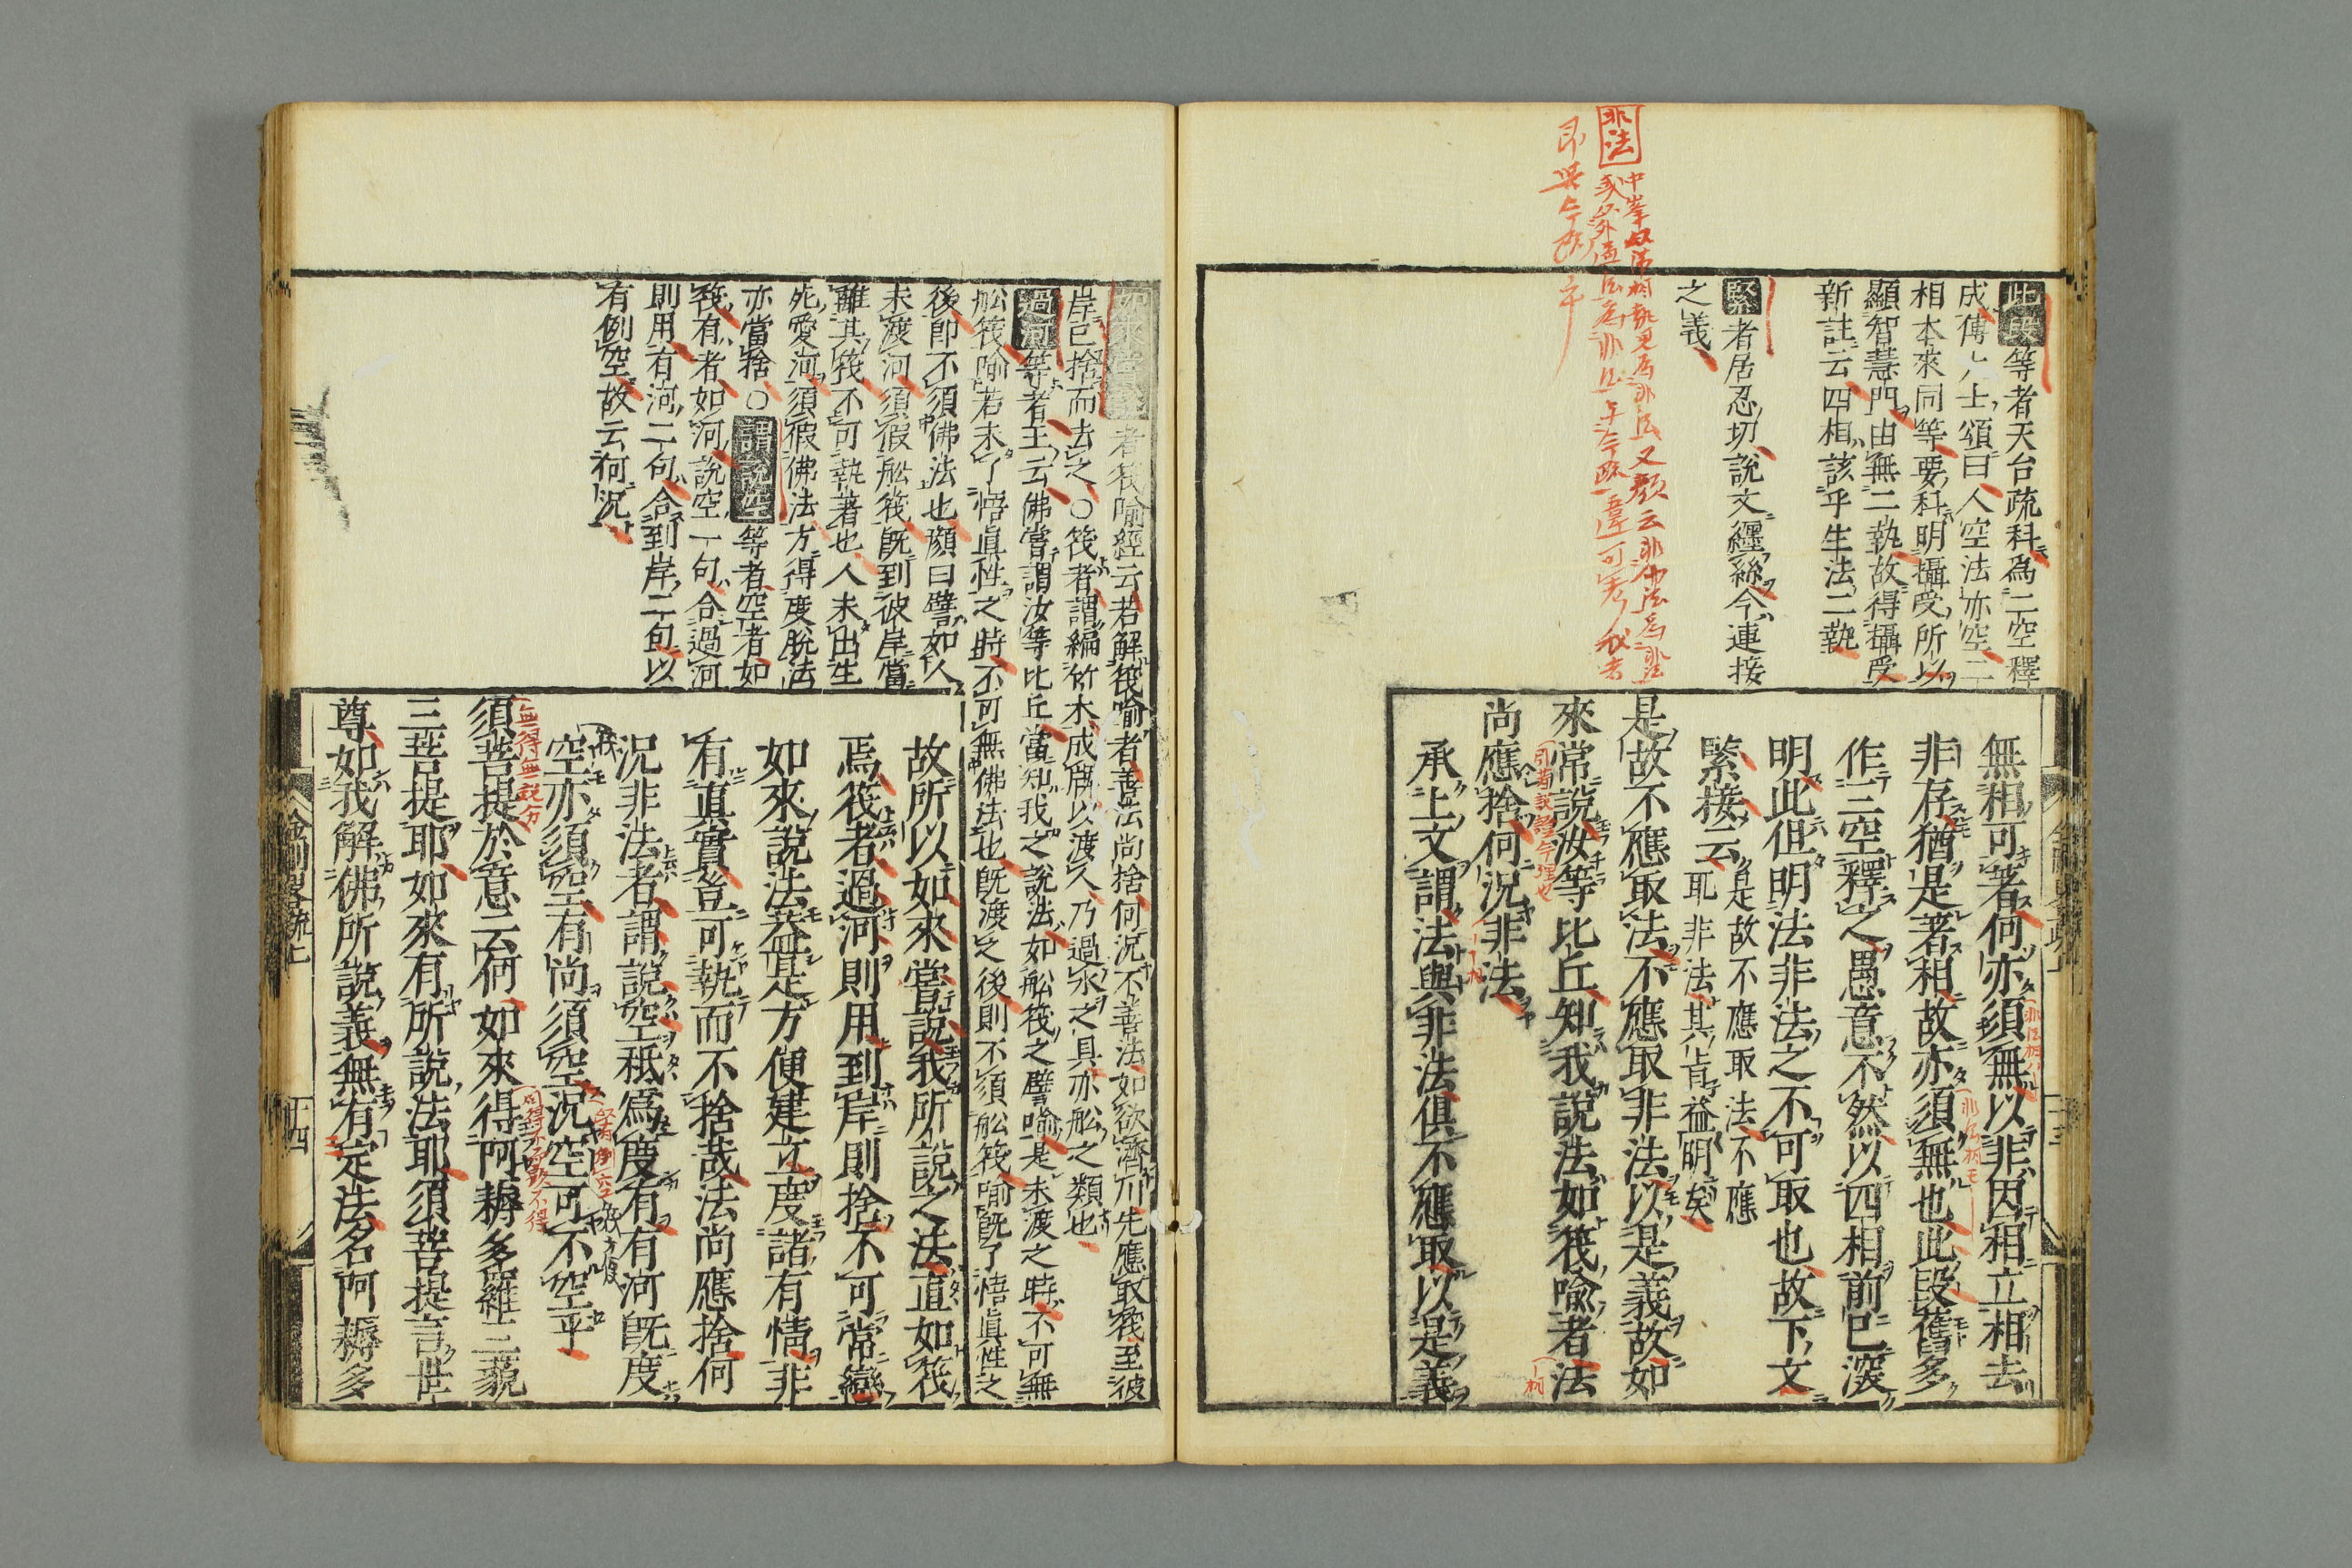 此段等者天台疏科爲二空釋
成傅大士頌曰人空法亦空二
相本來同等要科明攝受所以
顯智慧門由無二執故得攝受
新註云四相該乎生法二執
緊者居忍切說文纒絲今連接
之義
非法
無相可著何亦須無以非因相立相去
非存猶是著相故亦須無也此段舊多
作三空釋之愚意不然以四相前已深
明此但明法非法之不可取也故下文
緊接云是故不應取法不應
耶非法其肯益明矣
是故不應取法不應取非法以是義故如
來常說汝等比丘知我說法如筏喻者法
尚應捨何況非法
承上文謂法與非法俱不應取以是義
如來嘗說者筏喻經云若解筏喻者善法尚捨何況不善法如欲濟川先應取筏至彼
岸已捨而去之○筏者謂編竹木成牌以渡人乃過水之具亦舩之類也
過河等者王云佛嘗謂汝等比丘當知我之說法如舩筏之譬喻是未渡之時不可無
舩筏喻若未了悟眞性之時不可無佛法也旣渡之後則不須舩筏喻旣了悟眞性之
後卽不須佛法也顏曰譬如人
未渡河須假舩筏旣到彼岸當
離其筏不可執著也人未出生
死愛河須假佛法方得度脫法
亦當捨○謂說空等者空者如
筏有者如河說空一句合過河
則用有河二句合到岸二句以
有例空故云何況
故所以如來嘗說我所說之法直如筏
焉筏者過河則用到岸則捨不可常戀
如來說法葢是方便建立度諸有情非
有眞實豈可執而不捨哉法尚應捨何
況非法者謂說空秪爲度有有河旣度
空亦須空有尚須空況空可不空乎
無得無說分
須菩提於意云何如來得阿耨多羅三藐
三菩提耶如來有所說法耶須菩提言世
尊如我解佛所說義無有定法名阿耨多
金剛畧疏上
十四